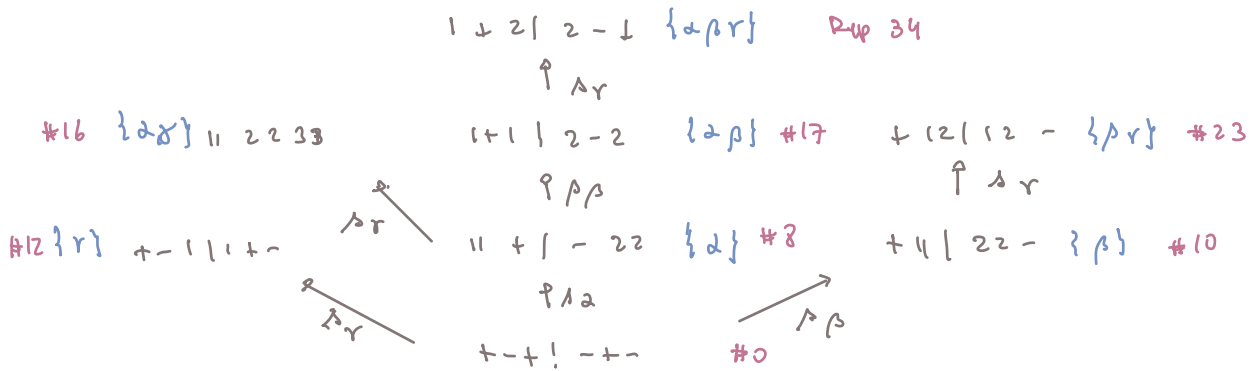 1 + 2 1 2 - 1 {αβγ} Rep 34
sγ
#16 {αγ} 11 2 2 3 3 1 + 1 | 2 - 2 {αβ} #17 + 12 | 12 - {βγ} #23
sγ sβ sγ
#12 {γ} + - 1 | 1 + - 11 + | - 22 {α} #8 + 11 | 22 - {β} #10
sγ sα sβ
+ - + | - + - #0